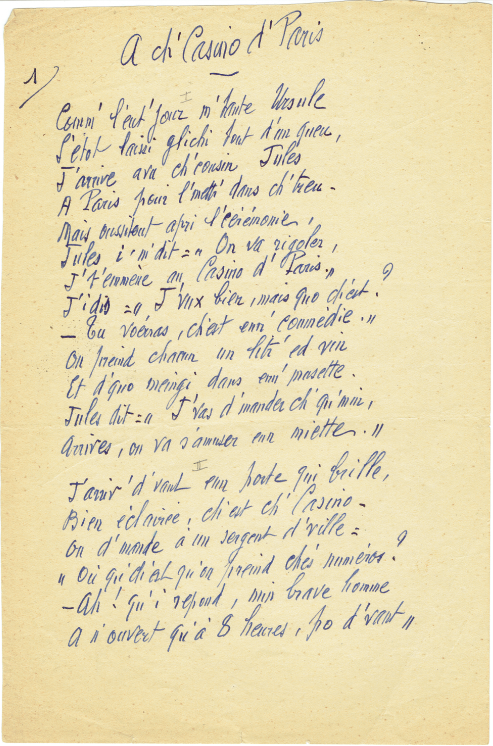 A ch' Casino d' Paris
1)
I
Comm' l'eut' jour m' tante Ursule
S'étot laissi glichi tout d'un queu,
J'arrive avu ch'cousin Jules
A Paris pour l'mett' dans ch'treu -
Mais aussitout apri l'cérémonie,
Jules i' m'dit = " On va rigoler,
J't'emmène au Casino d' Paris "
J'i dis = " J'vux bien, mais quo ch'est ?
- Tu voéras, ch'est enn' conmédie . "
On preind chacun un lit' ed vin
Et d'quo meingi dans enn' musette .
Jules dit = " J'vas d'mander ch'qu'min,
Arrives, on va s'amuser enn miette . "
II
J'arriv' d'vant enn porte qui brille,
Bien éclairée, ch'est ch' Casino -
On d'mande à un sergent d'ville =
" Où qu'ch'est qu'on preind chés numéros ?
- Ah ! qu'i répond, min brave homme
A n'ouvert qu'à 8 heures, po d'vant "